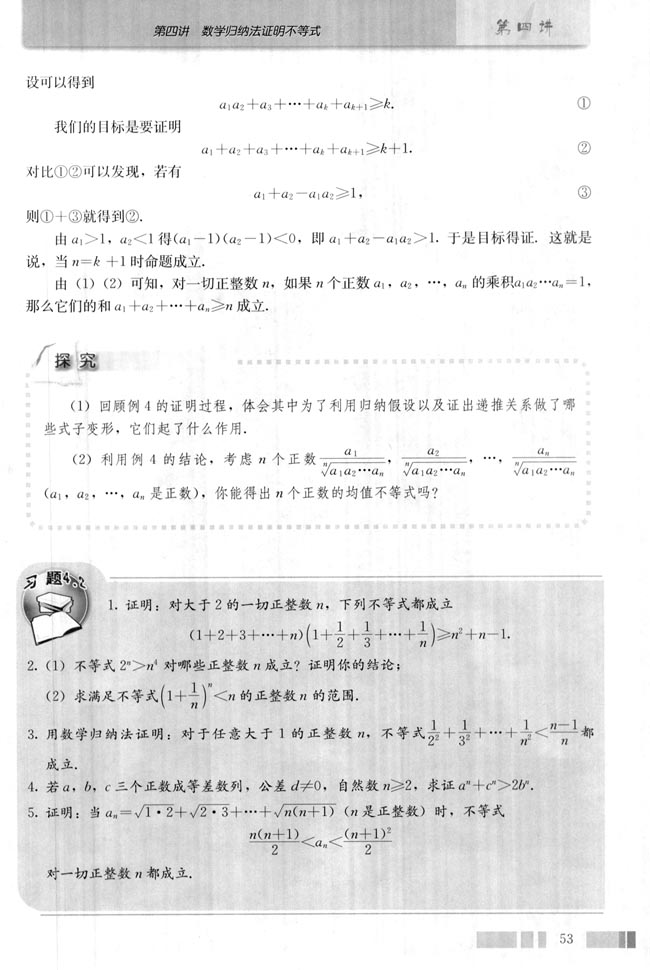 第四讲 数学归纳法证明不等式
第四讲
设可以得到
a₁a₂+a₃+…+aₖ+aₖ₊₁≥k. ①
我们的目标是要证明
a₁+a₂+a₃+…+aₖ+aₖ₊₁≥k+1. ②
对比①②可以发现，若有
a₁+a₂-a₁a₂≥1, ③
则①+③就得到②.
由 a₁>1, a₂<1 得(a₁-1)(a₂-1)<0, 即 a₁+a₂-a₁a₂>1. 于是目标得证. 这就是
说，当 n=k+1 时命题成立.
由（1）（2）可知，对一切正整数 n，如果 n 个正数 a₁, a₂, …, aₙ 的乘积a₁a₂…aₙ=1,
那么它们的和 a₁+a₂+…+aₙ≥n 成立.
探究
（1）回顾例 4 的证明过程，体会其中为了利用归纳假设以及证出递推关系做了哪
些式子变形，它们起了什么作用.
（2）利用例 4 的结论，考虑 n 个正数 a₁/ⁿ√(a₁a₂…aₙ), a₂/ⁿ√(a₁a₂…aₙ), …, aₙ/ⁿ√(a₁a₂…aₙ)
(a₁, a₂, …, aₙ 是正数)，你能得出 n 个正数的均值不等式吗?
习题4.2
1. 证明：对大于 2 的一切正整数 n，下列不等式都成立
(1+2+3+…+n)(1+1/2+1/3+…+1/n)≥n²+n-1.
2.（1）不等式 2ⁿ>n⁴ 对哪些正整数 n 成立? 证明你的结论;
（2）求满足不等式(1+1/n)ⁿ<n 的正整数 n 的范围.
3. 用数学归纳法证明：对于任意大于 1 的正整数 n，不等式1/2²+1/3²+…+1/n²<(n-1)/n都
成立.
4. 若 a, b, c 三个正数成等差数列，公差 d≠0，自然数 n≥2，求证 aⁿ+cⁿ>2bⁿ.
5. 证明：当 aₙ=√(1·2)+√(2·3)+…+√(n(n+1))（n 是正整数）时，不等式
n(n+1)/2<aₙ<(n+1)²/2
对一切正整数 n 都成立.
53